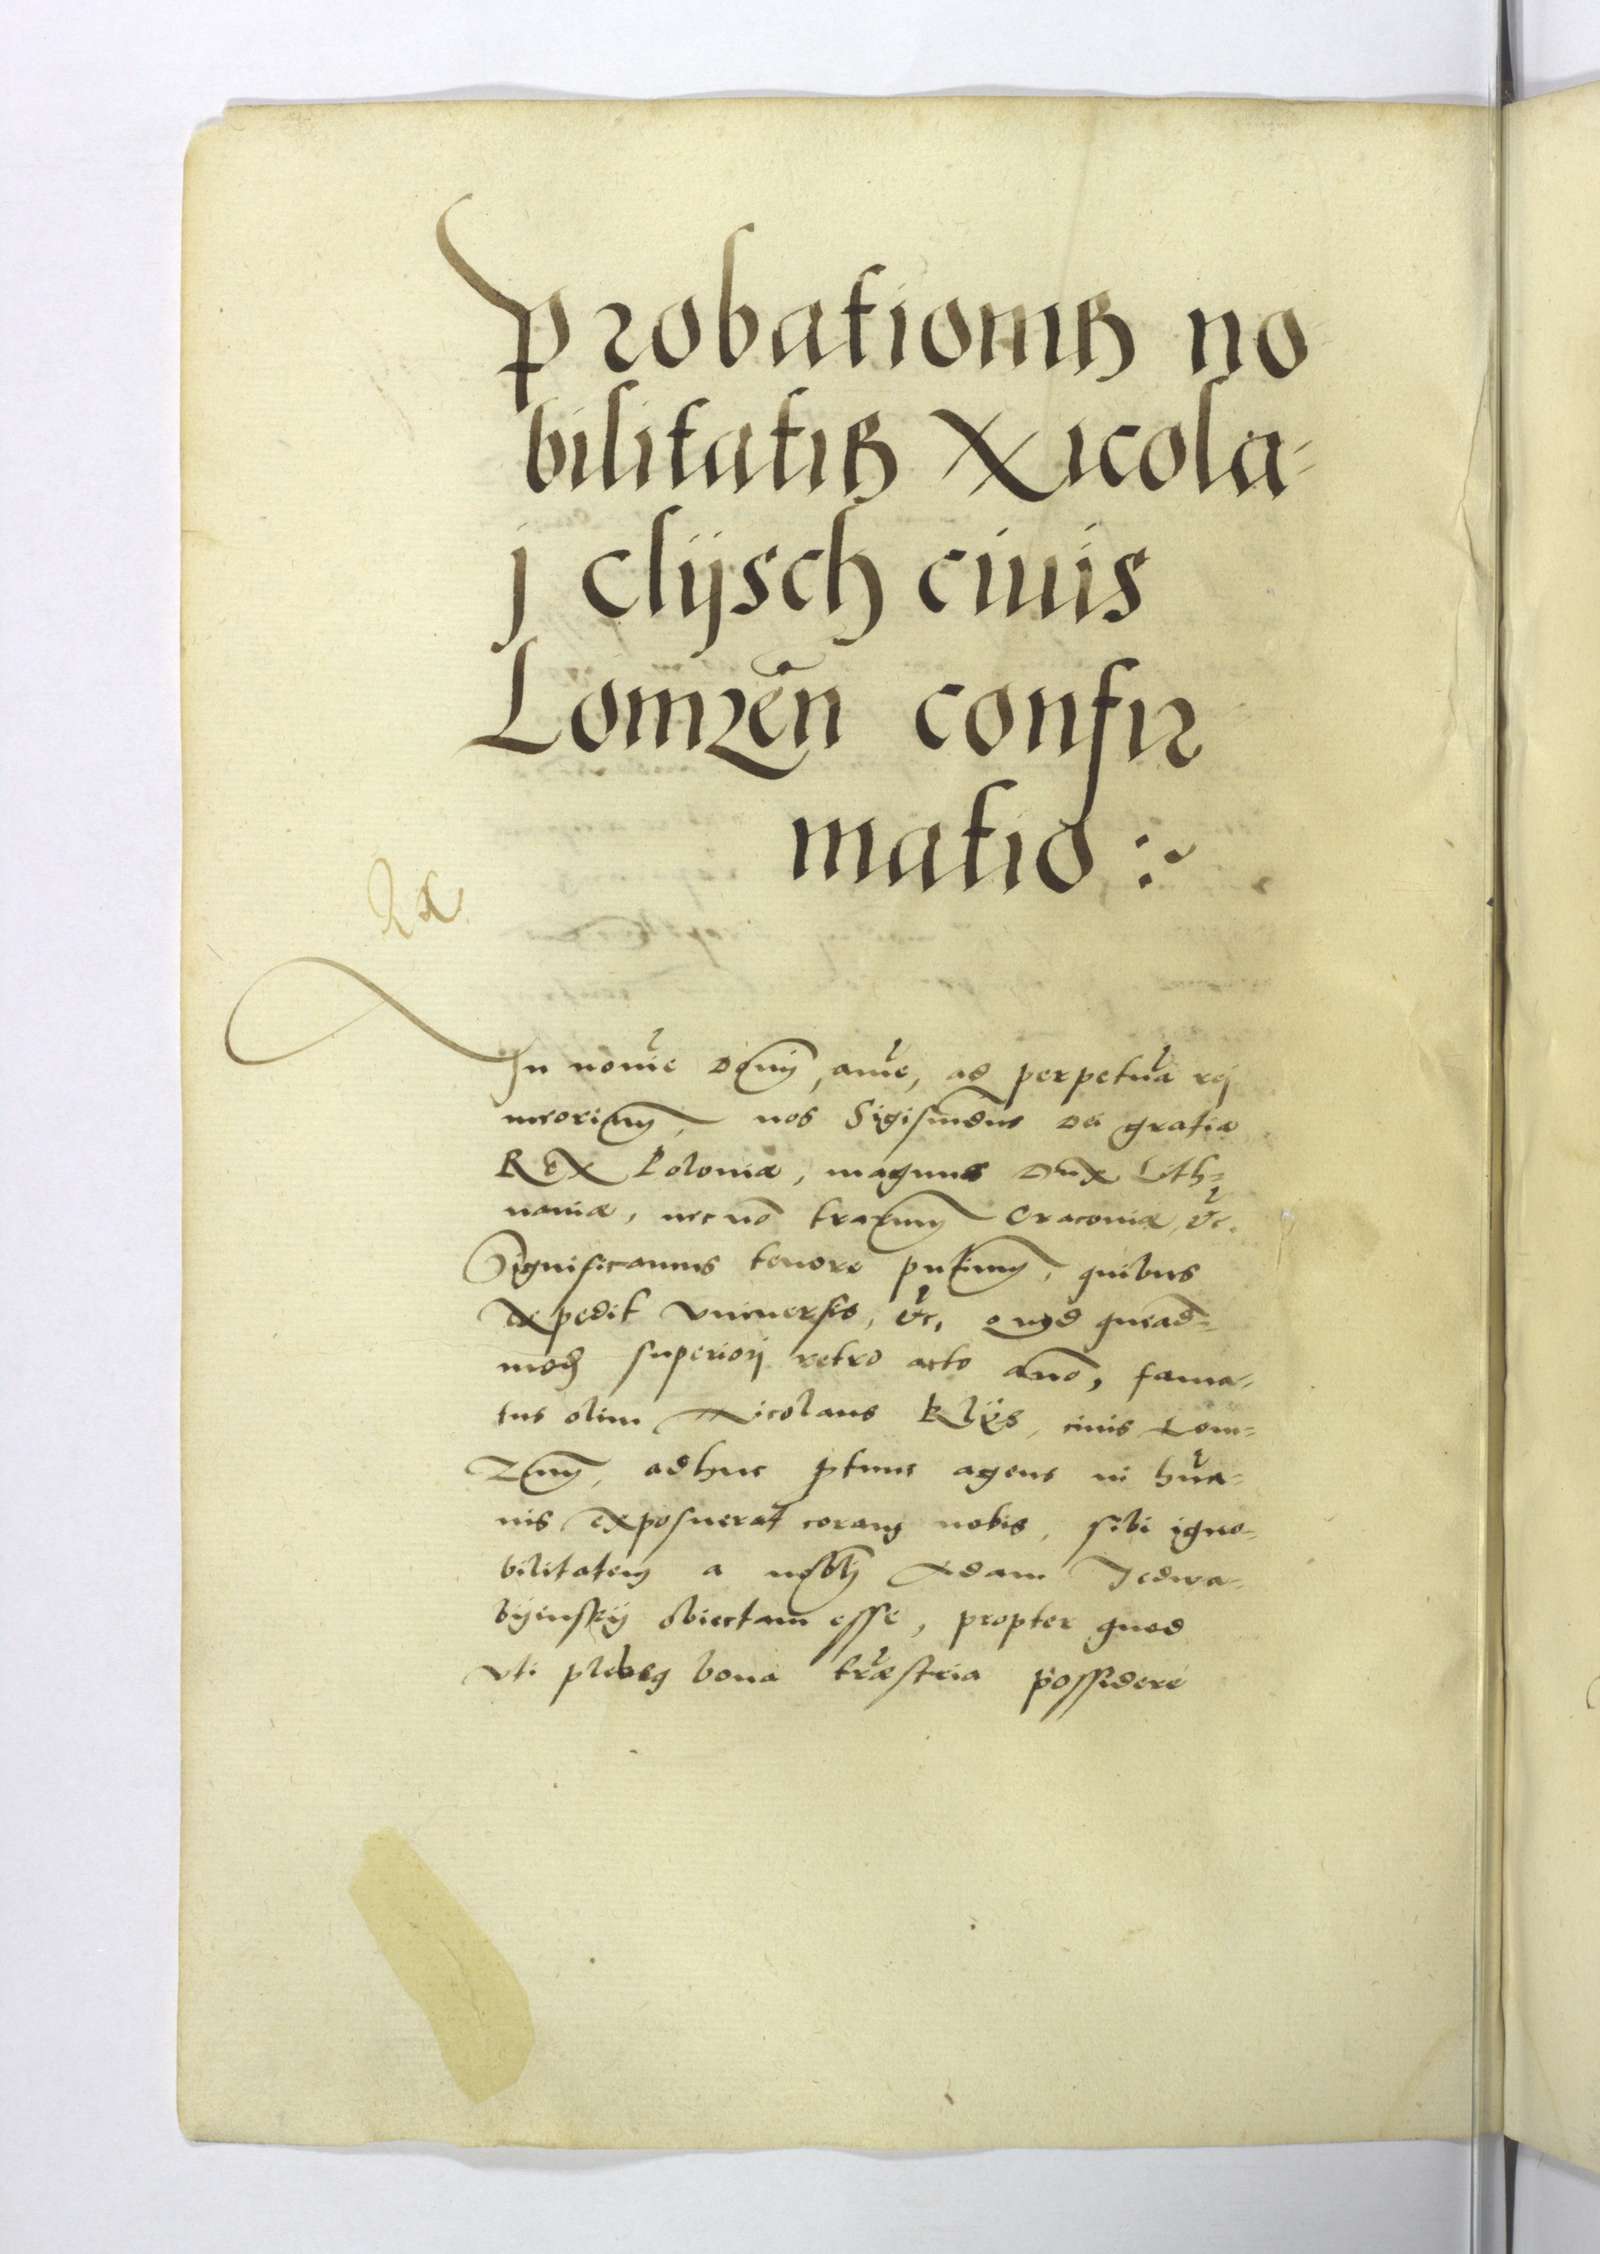 Probationis no
bilitatis Nicola-
j Clijsch ciuis
Lomzen̄ confir
matio :~
Rx
In noīe Dnīj, amē, ad perpetuā rej
meoriam, nos Sigismūdus Dei gratia
Rex Poloniæ, magnus Dux Lith=
uaniæ, nec nō terrarum Cracoviæ, &c.
Significamus tenore pntium, quibus
expedit vniuersis, &c. quod quead=
mod superiorj retro acto anō, fama-
tus olim Nicolaus Klÿs, ciuis Lom=
zen, adhuc ptunc agens in hūa-
nis exposuerat coram nobis, sibi igno-
bilitatem a nobli Adam Jedwa-
bÿenskÿ obiectam esse, propter quod
vti plebeg bona trēstria possidere